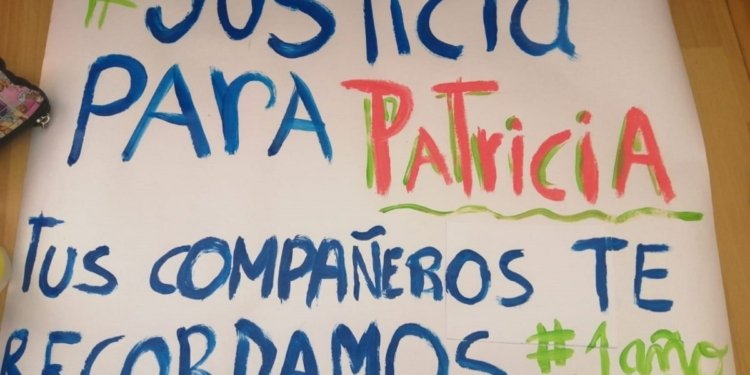 #Justicia
PArA PaTriciA
Tus COMPAÑEROS TE
RECORDAMOS #1año